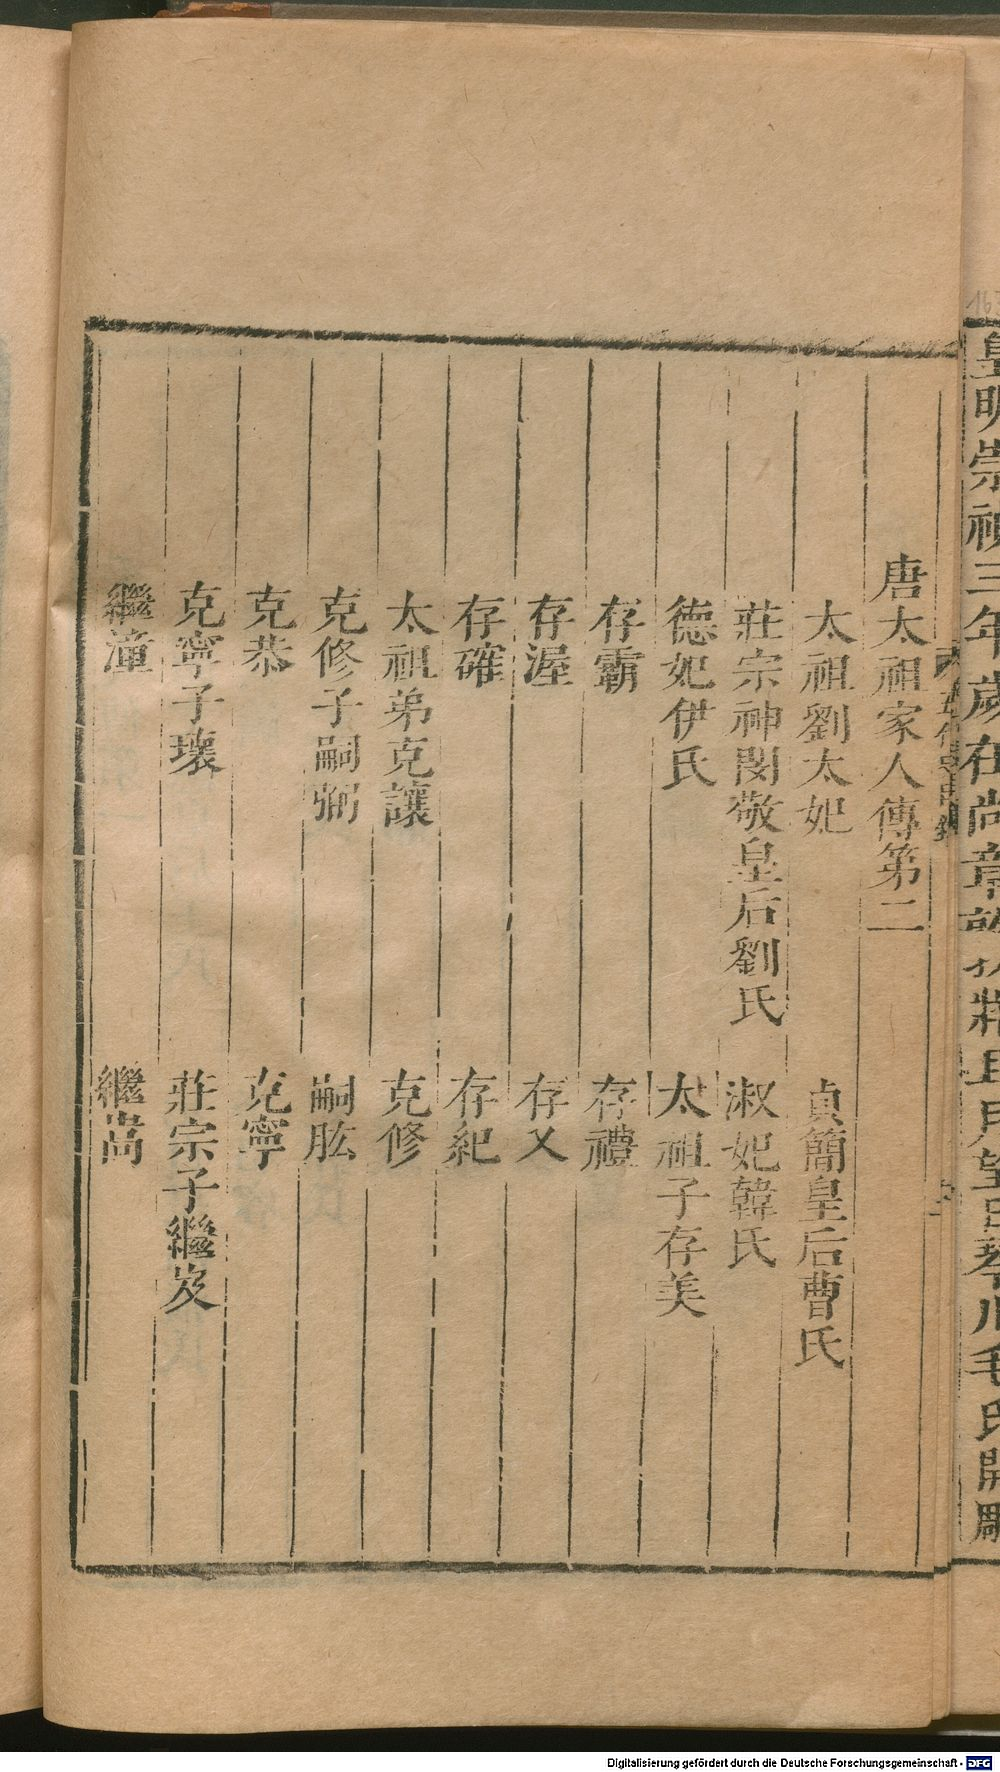 皇明崇禎三年歲在尚章
月望日琴川毛氏開雕
唐太祖家人傳第二
太祖劉太妃 貞簡皇后曹氏
莊宗神閔敬皇后劉氏 淑妃韓氏
德妃伊氏 太祖子存美
存霸 存禮
存渥 存乂
存確 存紀
太祖弟克讓 克修
克修子嗣弼 嗣肱
克恭 克寧
克寧子瓌 莊宗子繼岌
繼潼 繼嵩
Digitalisierung gefördert durch die Deutsche Forschungsgemeinschaft - DFG